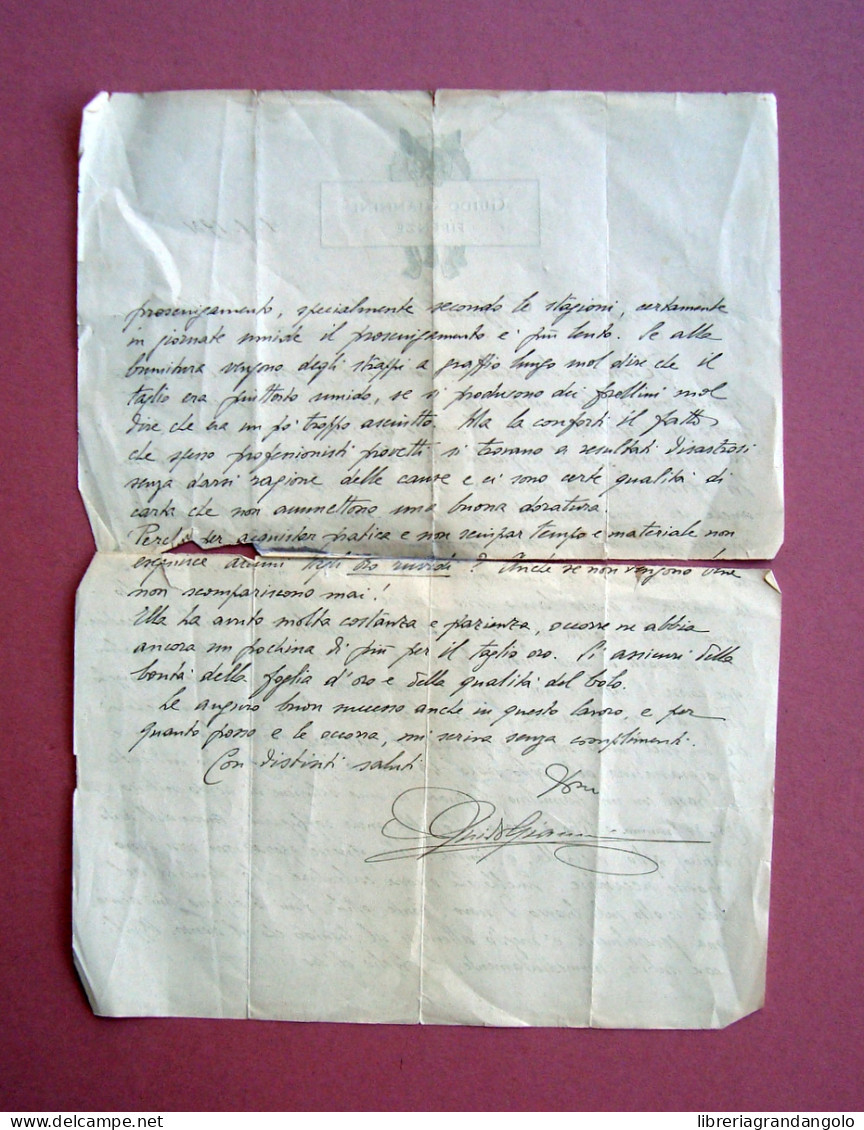 GUIDO GIANNINI
FIRENZE
prosciugamento, specialmente secondo le stagioni, certamente
in giornate umide il prosciugamento è più lento. Se alla
brunitura vengono degli strappi a graffio lungo vuol dire che il
taglio era piuttosto umido, se si producono dei forellini vuol
dire che era un po' troppo asciutto. Ma la conforti il fatto
che spesso professionisti provetti si trovano a resultati disastrosi
senza darsi ragione delle cause e ci sono certe qualità di
carta che non ammettono una buona doratura.
Perchè per acquistar pratica e non sciupar tempo e materiale non
eseguisce alcuni tagli oro ruvidi? Anche se non vengono bene
non scompariscono mai!
Ella ha avuto molta costanza e pazienza, occorre ne abbia
ancora un pochina di più per il taglio oro. Si assicuri della
bontà della foglia d'oro e della qualità del bolo.
Le auguro buon successo anche in questo lavoro, e per
quanto posso e le occorra, mi scriva senza complimenti.
Con distinti saluti
Guido Giannini
www.delcampe.net
libreriagrandangolo